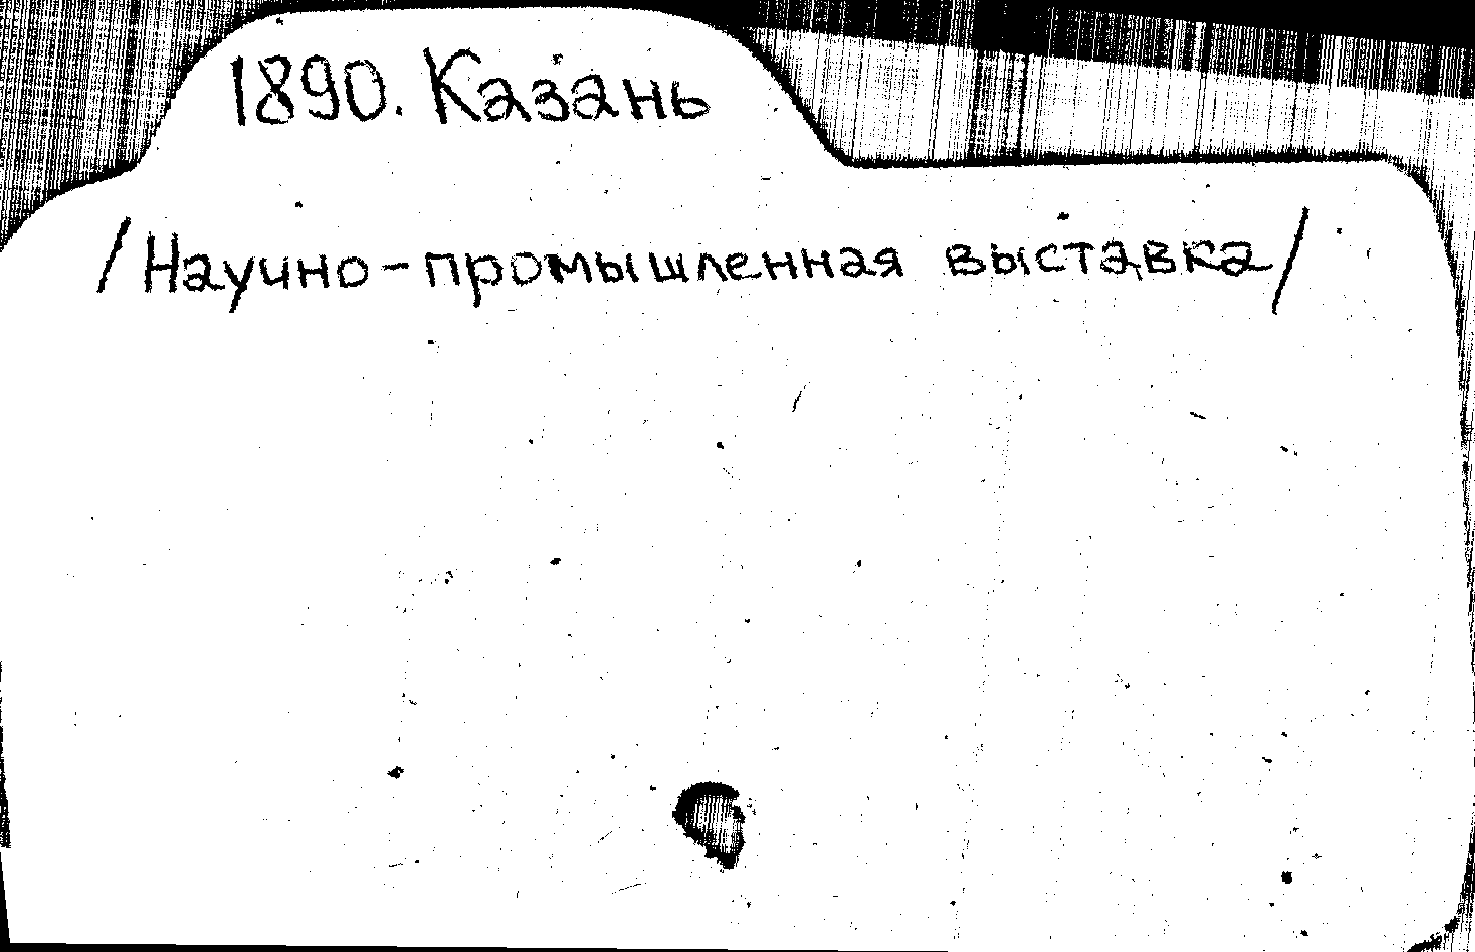 1890. Казань
/Научно-промышленная выставка/